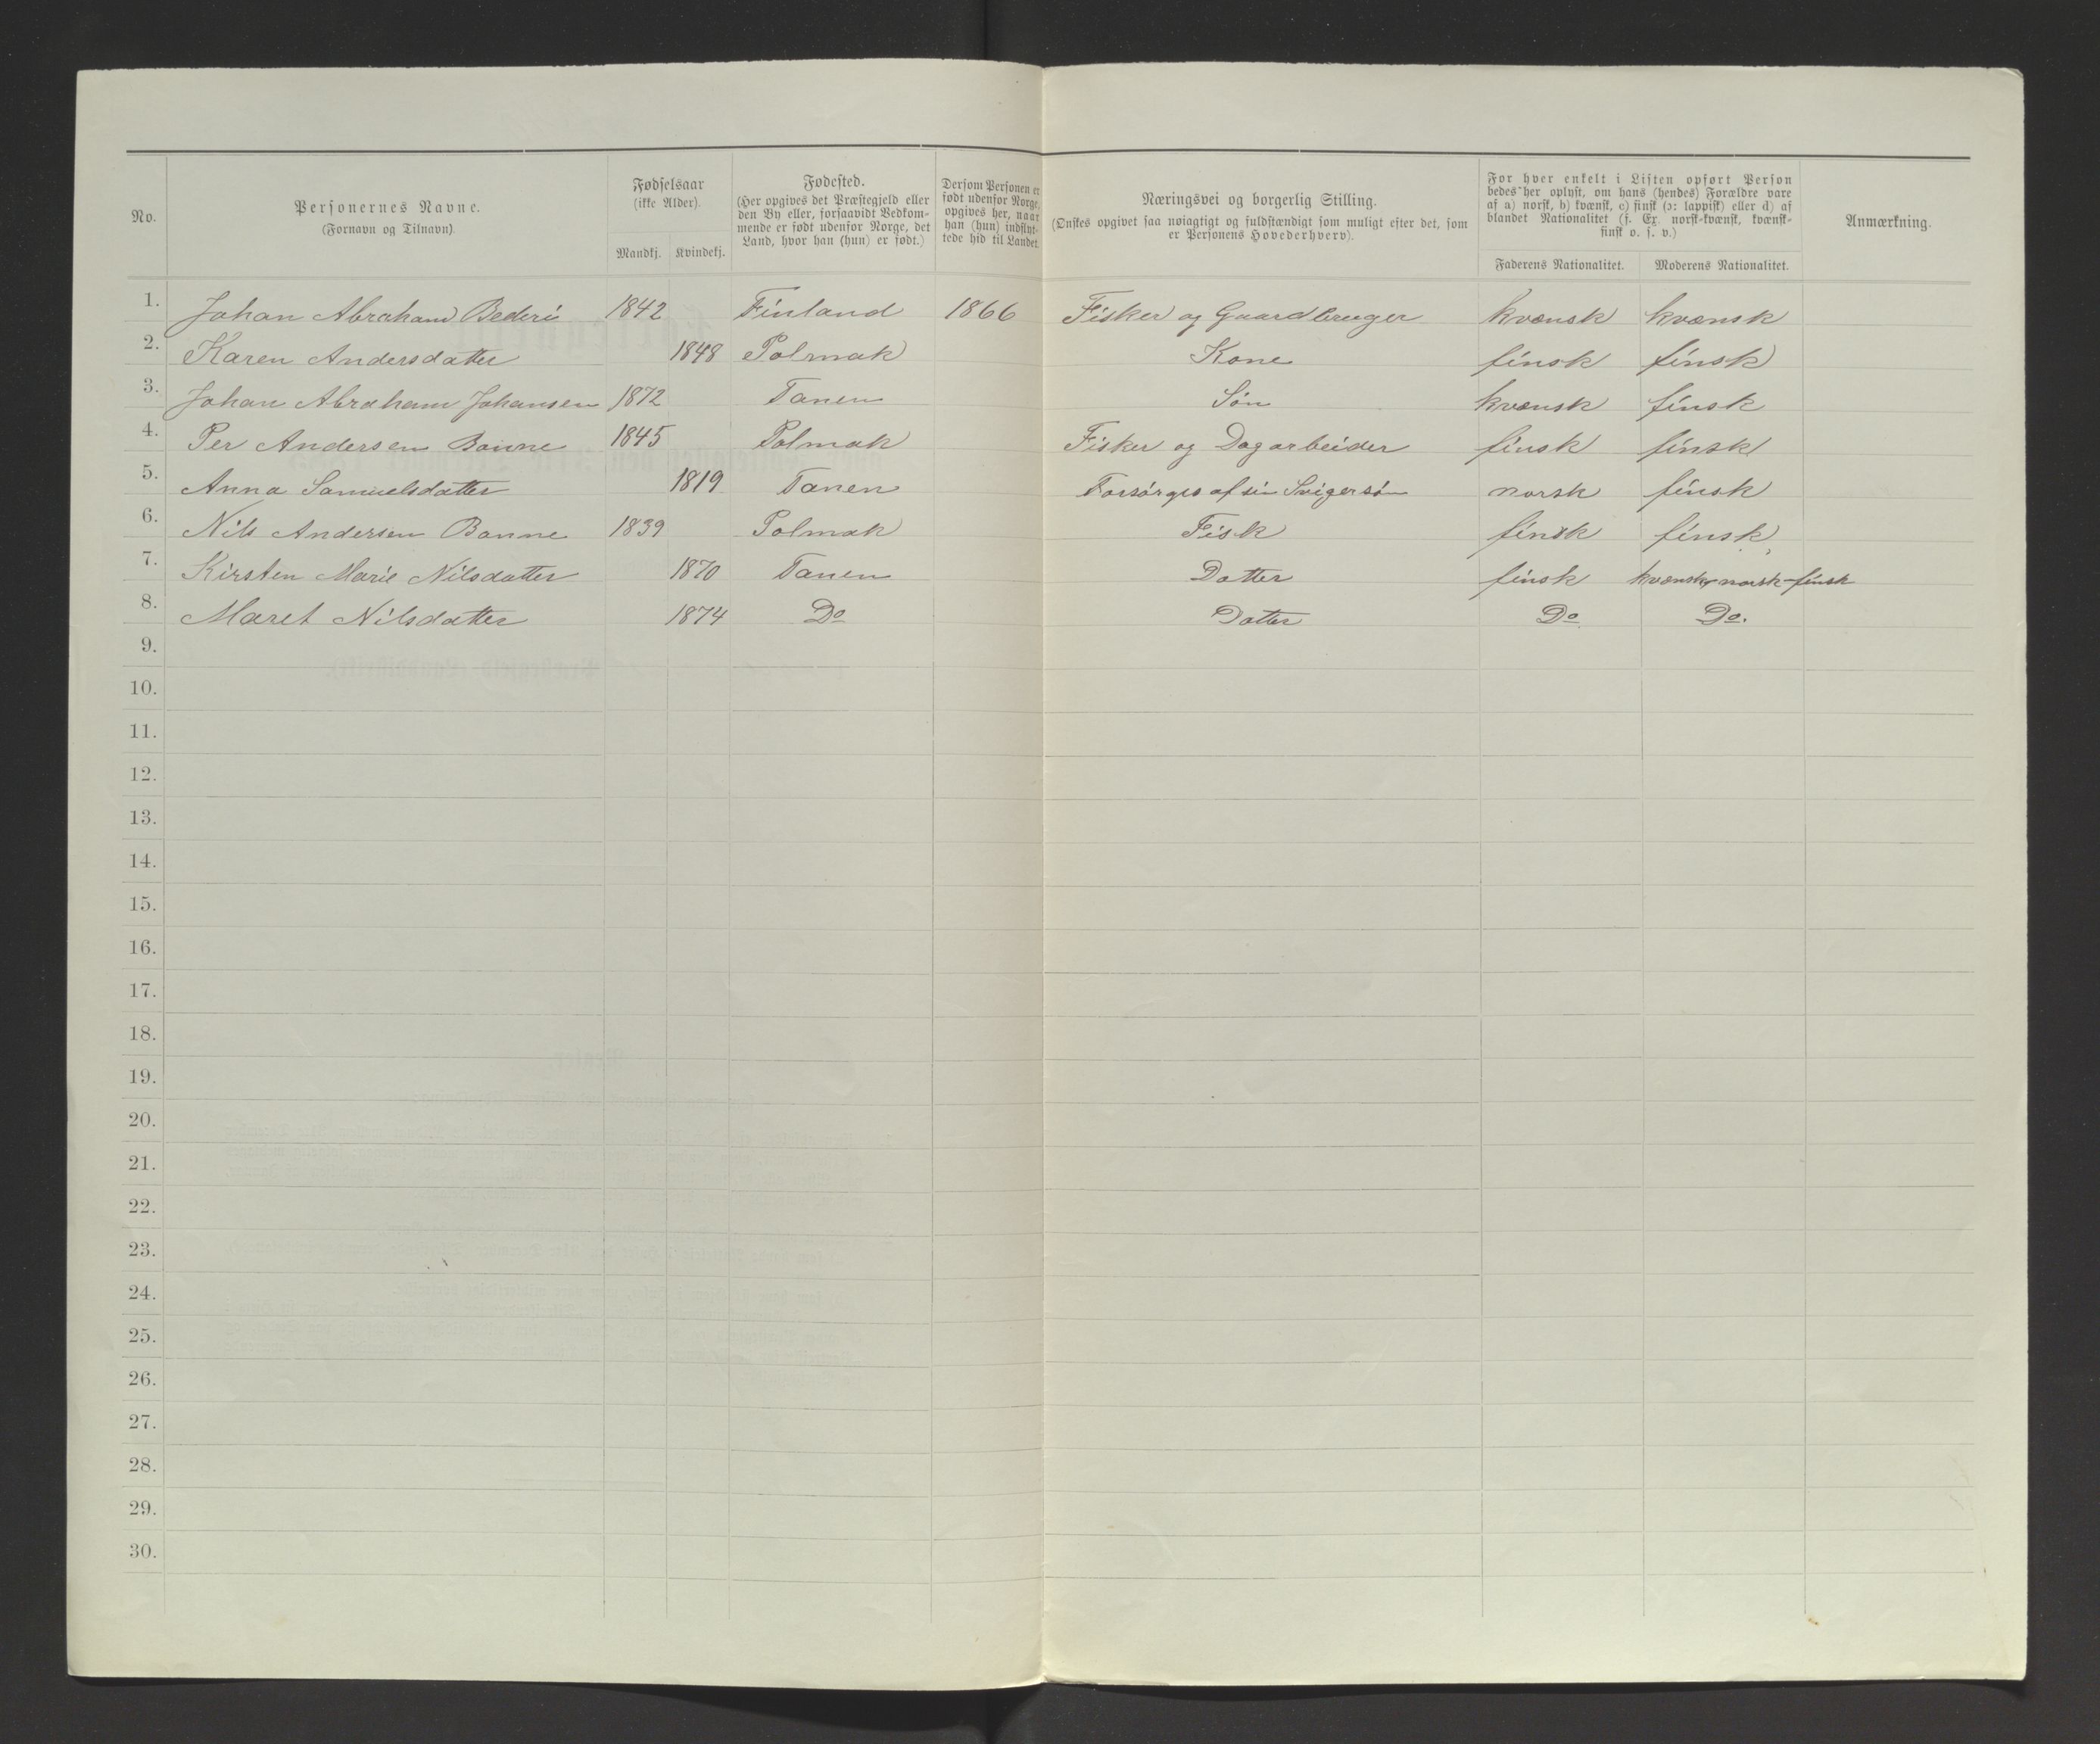 No.
Personernes Navne.
(Fornavn og Tilnavn).
Fødselsaar
(ikke Alder).
Mandkj. Kvindekj.
Fødested.
(Her opgives det Præstegjeld eller
den By eller, forsaavidt Vedkom-
mende er født udenfor Norge, det
Land, hvor han (hun) er født.)
Dersom Personen er
født udenfor Norge,
opgives her, naar
han (hun) indflyt-
tede hid til Landet.
Næringsvei og borgerlig Stilling.
(Ønskes opgivet saa nøiagtigt og fuldstændigt som muligt efter det, som
er Personens Hovederhverv).
For hver enkelt i Listen opført Person
bedes her oplyst, om hans (hendes) Forældre vare
af a) norsk, b) kvænsk, c) finsk (ɔ: lappisk) eller d) af
blandet Nationalitet (f. Ex. norsk-kvænsk, kvænsk-
finsk o. s. v.)
Faderens Nationalitet. Moderens Nationalitet.
Anmærkning.
1. Johan Abraham Bederi 1842 Finland 1866 Fisker og Gaardbruger kvænsk kvænsk
2. Karen Andersdatter 1848 Polmak Kone finsk finsk
3. Johan Abraham Johansen 1872 Tanen Søn kvænsk finsk
4. Per Andersen Banne 1845 Polmak Fisker og Dagarbeider finsk finsk
5. Anna Samuelsdatter 1819 Tanen Forsørges af sin Svigersøn norsk finsk
6. Nils Andersen Banne 1839 Polmak Fisk finsk finsk
7. Kirsten Marie Nilsdatter 1870 Tanen Datter finsk kvænsk-norsk-finsk
8. Maret Nilsdatter 1874 Do Datter Do Do.
9.
10.
11.
12.
13.
14.
15.
16.
17.
18.
19.
20.
21.
22.
23.
24.
25.
26.
27.
28.
29.
30.